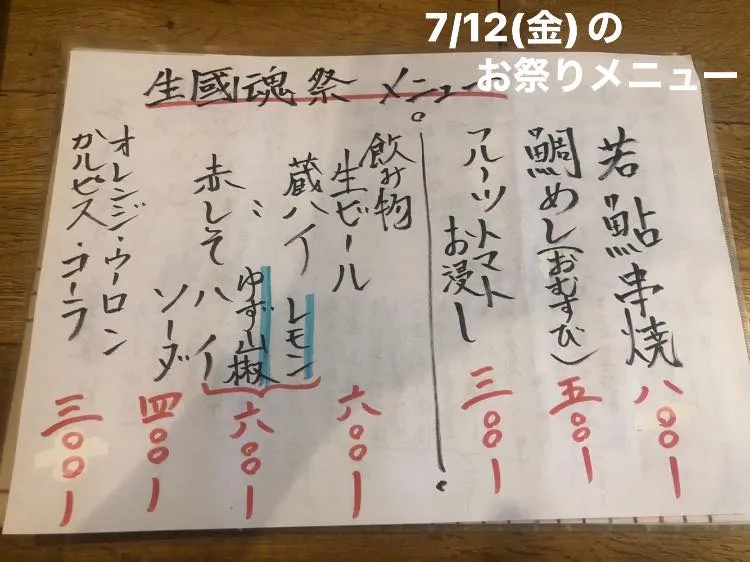 7/12(金)の
お祭りメニュー
生國魂祭 メニュー
若鮎串焼 八〇〇ー
鯛めし(おむすび) 五〇〇ー
フルーツトマト
お浸し 三〇〇ー
飲み物
生ビール 六〇〇ー
蔵ハイ レモン
〃 ゆず山椒
赤しそハイ 六〇〇ー
ソーダ 四〇〇ー
オレンジ・ウーロン
カルピス・コーラ 三〇〇ー